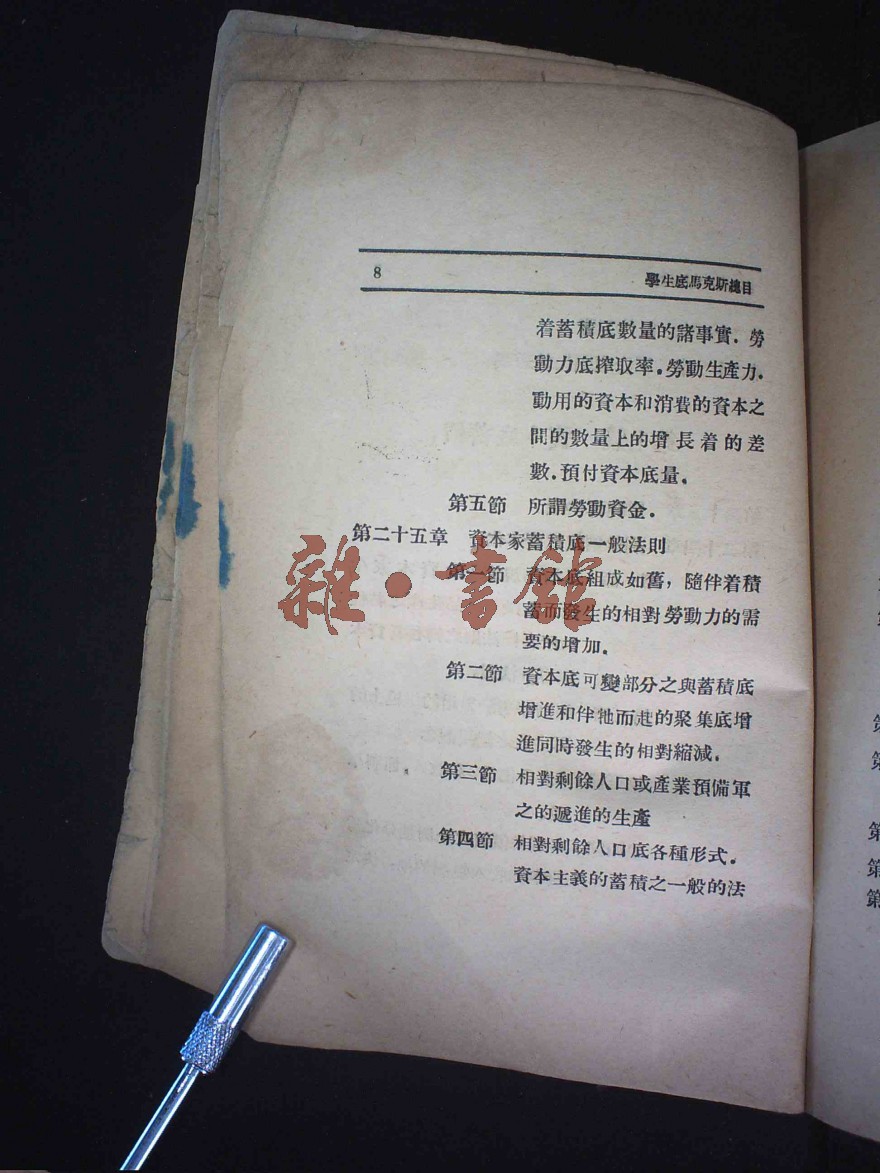 8
學生底馬克斯總目
着蓄積底數量的諸事實．勞
動力底搾取率。勞動生產力．
動用的資本和消費的資本之
間的數量上的增長着的差
數．預付資本底量。
第五節 所謂勞動資金．
第二十五章 資本家蓄積底一般法則
第一節 資本底組成如舊，隨伴着積
蓄而發生的相對勞動力的需
要的增加。
第二節 資本底可變部分之與蓄積底
增進和伴牠而起的聚集底增
進同時發生的相對縮減．
第三節 相對剩餘人口或產業預備軍
之的遞進的生產
第四節 相對剩餘人口底各種形式．
資本主義的蓄積之一般的法
雜·書館
第
第
第
第
第